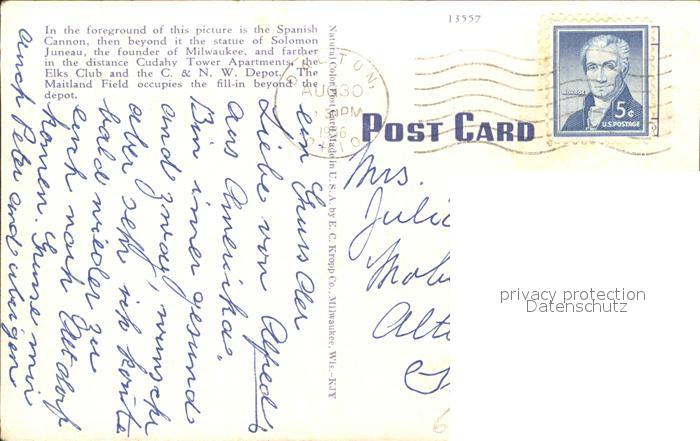 In the foreground of this picture is the Spanish
Cannon, then beyond it the statue of Solomon
Juneau, the founder of Milwaukee, and farther
in the distance Cudahy Tower Apartments, the
Elks Club and the C. & N. W. Depot. The
Maitland Field occupies the fill-in beyond the
depot.
13557
Natural Color Post Card Made in U. S. A. by E. C. Kropp Co., Milwaukee, Wis.—KJY
POST CARD
AUG 30
PM
MONROE
5¢
U.S. POSTAGE
ein Gruss der
Liebe von Alfred
aus Amerika.
Bin immer gesund
und zwäg, wünsch
aber sehr ich könte
bald wieder zu
euch nach Altdorf
komen. Grüsse mir
auch Peter und übrigen
Mrs.
privacy protection
Datenschutz